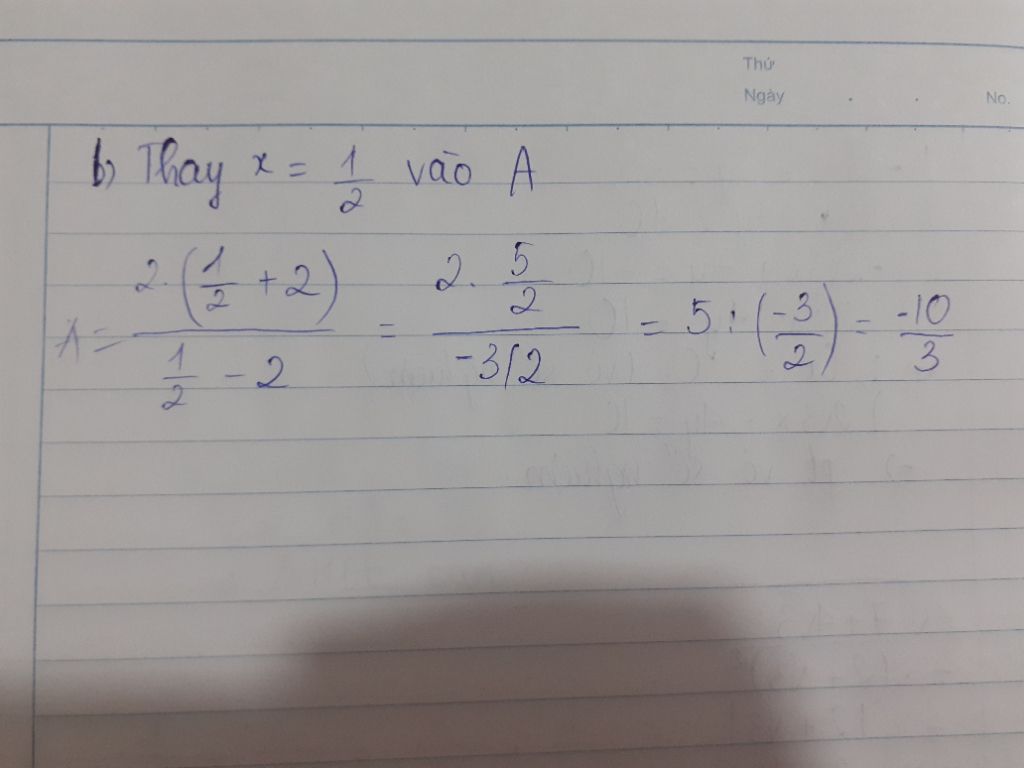 Thứ
Ngày . . No.
b) Thay x = 1/2 vào A
A = 2.(1/2 + 2) / (1/2 - 2) = 2. 5/2 / (-3/2) = 5 : (-3/2) = -10/3